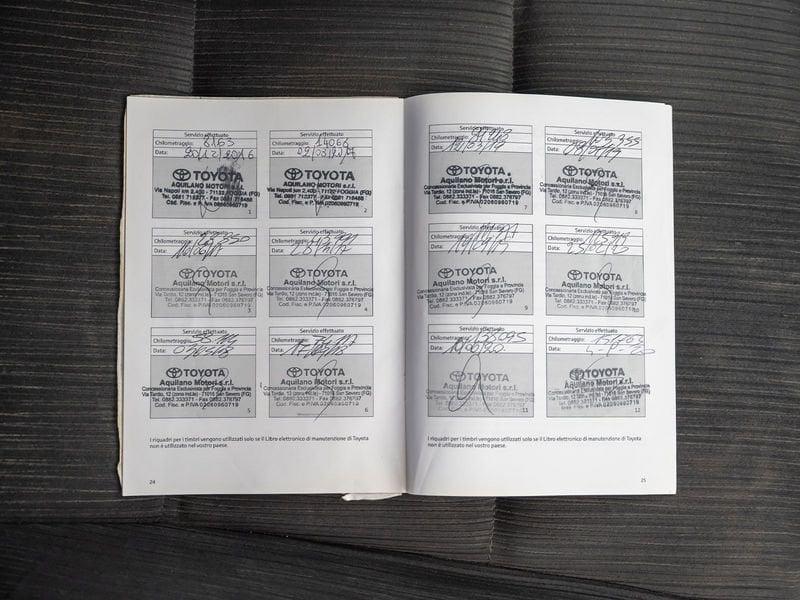 Servizio effettuato
Chilometraggio: 8163
Data: 20/12/2016
TOYOTA
AQUILANO MOTORI s.r.l.
Via Napoli km 2,400 - 71122 FOGGIA (FG)
Cod. Fisc. e P.IVA 02060960719
1
Servizio effettuato
Chilometraggio: 14066
Data:
TOYOTA
AQUILANO MOTORI s.r.l.
Via Napoli km 2,400 - 71122 FOGGIA (FG)
Cod. Fisc. e P.IVA 02060960719
2
Servizio effettuato
Chilometraggio:
Data:
TOYOTA
Aquilano Motori s.r.l.
Concessionaria Esclusivista per Foggia e Provincia
Via Tardio, 12 (zona ind.le) - 71016 San Severo (FG)
Tel. 0882.333371 - Fax 0882.376797
Cod. Fisc. e P.IVA 02060960719
3
Servizio effettuato
Chilometraggio:
Data:
TOYOTA
Aquilano Motori s.r.l.
Concessionaria Esclusivista per Foggia e Provincia
Via Tardio, 12 (zona ind.le) - 71016 San Severo (FG)
Tel. 0882.333371 - Fax 0882.376797
Cod. Fisc. e P.IVA 02060960719
4
Servizio effettuato
Chilometraggio:
Data:
TOYOTA
Aquilano Motori s.r.l.
Concessionaria Esclusivista per Foggia e Provincia
Via Tardio, 12 (zona ind.le) - 71016 San Severo (FG)
Tel. 0882.333371 - Fax 0882.376797
Cod. Fisc. e P.IVA 02060960719
5
Servizio effettuato
Chilometraggio:
Data:
TOYOTA
Aquilano Motori s.r.l.
Concessionaria Esclusivista per Foggia e Provincia
Via Tardio, 12 (zona ind.le) - 71016 San Severo (FG)
Tel. 0882.333371 - Fax 0882.376797
Cod. Fisc. e P.IVA 02060960719
6
I riquadri per i timbri vengono utilizzati solo se il Libro elettronico di manutenzione di Toyota
non è utilizzato nel vostro paese.
24
Servizio effettuato
Chilometraggio:
Data:
TOYOTA
Aquilano Motori s.r.l.
Concessionaria Esclusivista per Foggia e Provincia
Via Tardio, 12 (zona ind.le) - 71016 San Severo (FG)
Tel. 0882.333371 - Fax 0882.376797
Cod. Fisc. e P.IVA 02060960719
7
Servizio effettuato
Chilometraggio:
Data:
TOYOTA
Aquilano Motori s.r.l.
Concessionaria Esclusivista per Foggia e Provincia
Via Tardio, 12 (zona ind.le) - 71016 San Severo (FG)
Tel. 0882.333371 - Fax 0882.376797
Cod. Fisc. e P.IVA 02060960719
8
Servizio effettuato
Chilometraggio:
Data:
TOYOTA
Aquilano Motori s.r.l.
Concessionaria Esclusivista per Foggia e Provincia
Via Tardio, 12 (zona ind.le) - 71016 San Severo (FG)
Tel. 0882.333371 - Fax 0882.376797
Cod. Fisc. e P.IVA 02060960719
9
Servizio effettuato
Chilometraggio:
Data:
TOYOTA
Aquilano Motori s.r.l.
Concessionaria Esclusivista per Foggia e Provincia
Via Tardio, 12 (zona ind.le) - 71016 San Severo (FG)
Tel. 0882.333371 - Fax 0882.376797
Cod. Fisc. e P.IVA 02060960719
10
Servizio effettuato
Chilometraggio:
Data:
TOYOTA
Aquilano Motori s.r.l.
Concessionaria Esclusivista per Foggia e Provincia
Via Tardio, 12 (zona ind.le) - 71016 San Severo (FG)
Tel. 0882.333371 - Fax 0882.376797
Cod. Fisc. e P.IVA 02060960719
11
Servizio effettuato
Chilometraggio:
Data:
TOYOTA
Aquilano Motori s.r.l.
Concessionaria Esclusivista per Foggia e Provincia
Via Tardio, 12 (zona ind.le) - 71016 San Severo (FG)
Tel. 0882.333371 - Fax 0882.376797
Cod. Fisc. e P.IVA 02060960719
12
I riquadri per i timbri vengono utilizzati solo se il Libro elettronico di manutenzione di Toyota
non è utilizzato nel vostro paese.
25